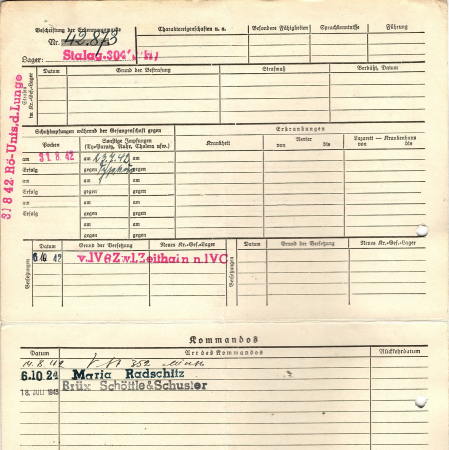 Beschriftung der Erkennungsmarke
Nr. 42873
Lager: Stalag 304 (IV H)
Charaktereigenschaften u. a.
Besondere Fähigkeiten
Sprachkenntnisse
Führung
Strafen im Kr.-Gef.-Lager
Datum
Grund der Bestrafung
Strafmaß
Verbüßt, Datum
31 8 42. Rö-Unts.d.Lunge
Schutzimpfungen während der Gefangenschaft gegen
Pocken
Sonstige Impfungen
(Ty-Paraty, Ruhr, Cholera usw.)
Erkrankungen
Krankheit
Revier
von bis
Lazarett - Krankenhaus
von bis
am 31 8. 42 am
Erfolg gegen
am am
Erfolg gegen
am am
Erfolg gegen
am
gegen
am
gegen
Versetzungen
Datum
Grund der Versetzung
Neues Kr.-Gef.-Lager
Datum
Grund der Versetzung
Neues Kr.-Gef.-Lager
Versetzungen
42 v.IV Zeithain n.IVC
Kommandos
Datum
Art des Kommandos
Rückkehrdatum
352
6.10 24 Maria Radschitz
18. JULI 1943 Brüx Schöttle&Schuster